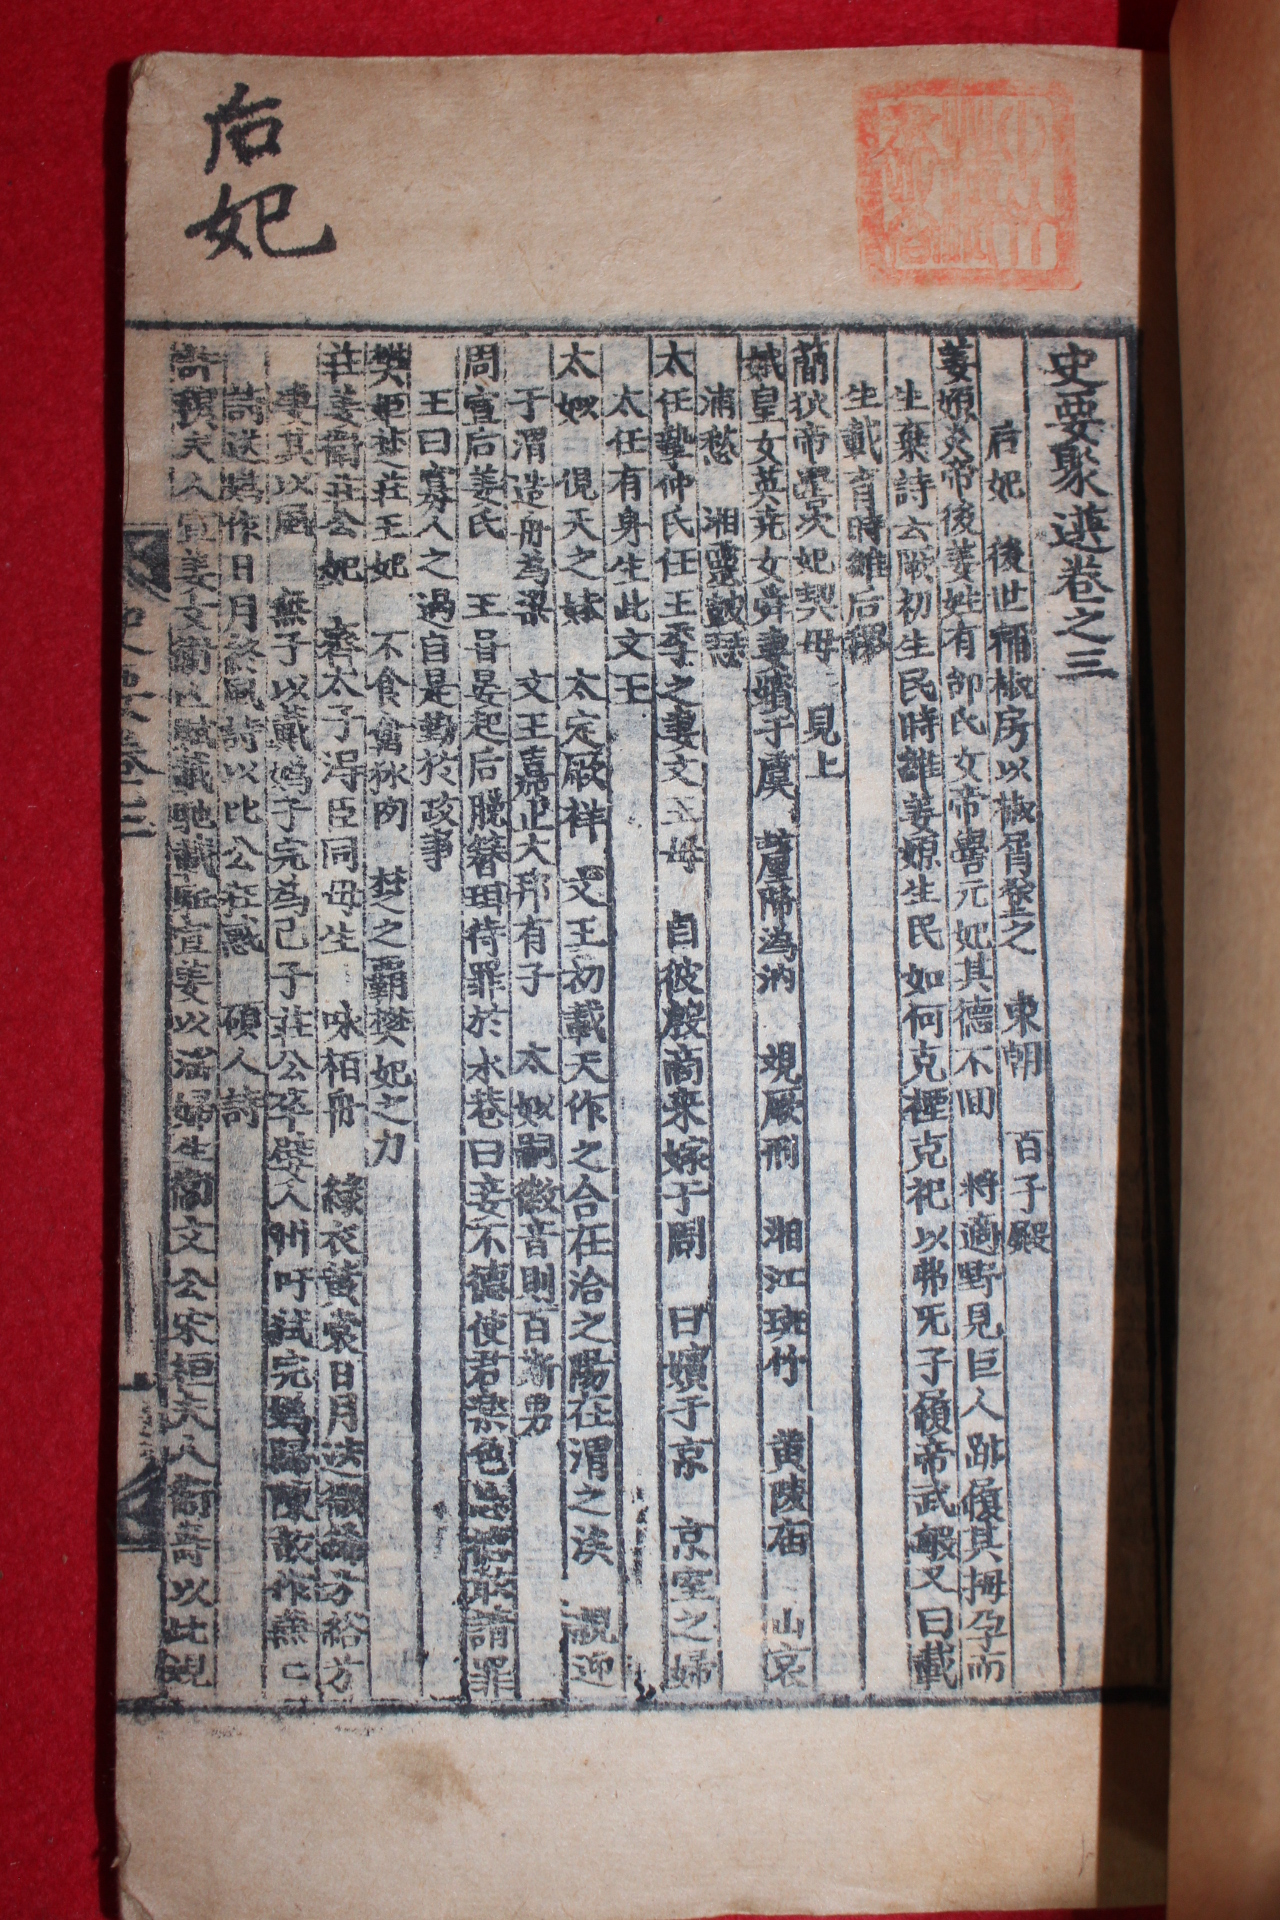 后妃
史要聚選卷之三
后妃 後世稱椒房以椒屑塗之 東朝 百子殿
姜嫄炎帝後姜姓有邰氏女帝嚳元妃其德不回 將適野見巨人跡履其拇孕而
生棄詩云厥初生民時誰姜嫄生民如何克禋克祀以弗旡子履帝武敏又曰載
生載育時維后稷
簡狄帝嚳次妃契母 見上
娥皇女英堯女舜妻嬪于虞 釐降溈汭 覌厥刑 湘江斑竹 黄陵庙 山哀
浦愁 湘靈鼓瑟
太任摯仲氏任王季之妻文王母 自彼殷商来嫁于周 曰嬪于京 京室之婦
太任有身生此文王
太姒 俔天之妹 太定厥祥 文王初載天作之合在洽之陽在渭之涘 親迎
于渭造舟為梁 文王嘉止大邦有子 太姒嗣徽音則百斯男
周宣后姜氏 王甞晏起后脫簪珥待罪於永巷曰妾不德使君樂色忘德敢請罪
王曰寡人之過自是勤於政事
樊姬楚莊王妃 不食禽獣肉 楚之覇樊妃之力
莊姜衛莊公妃 齊太子淂臣同母生 咏栢舟 緑衣黄裳日月迭微絺兮綌兮
凄其以風 無子以戴嬀子完為己子莊公卒嬖人州吁弑完嬀歸陳故作燕〻
詩送嬀作日月終風詩以比公在惑 碩人詩
許穆夫人宣姜女衛邑賦載馳載驅宣姜以淫婦生衛文公宋桓夫人衛詩以此覌
史要卷三